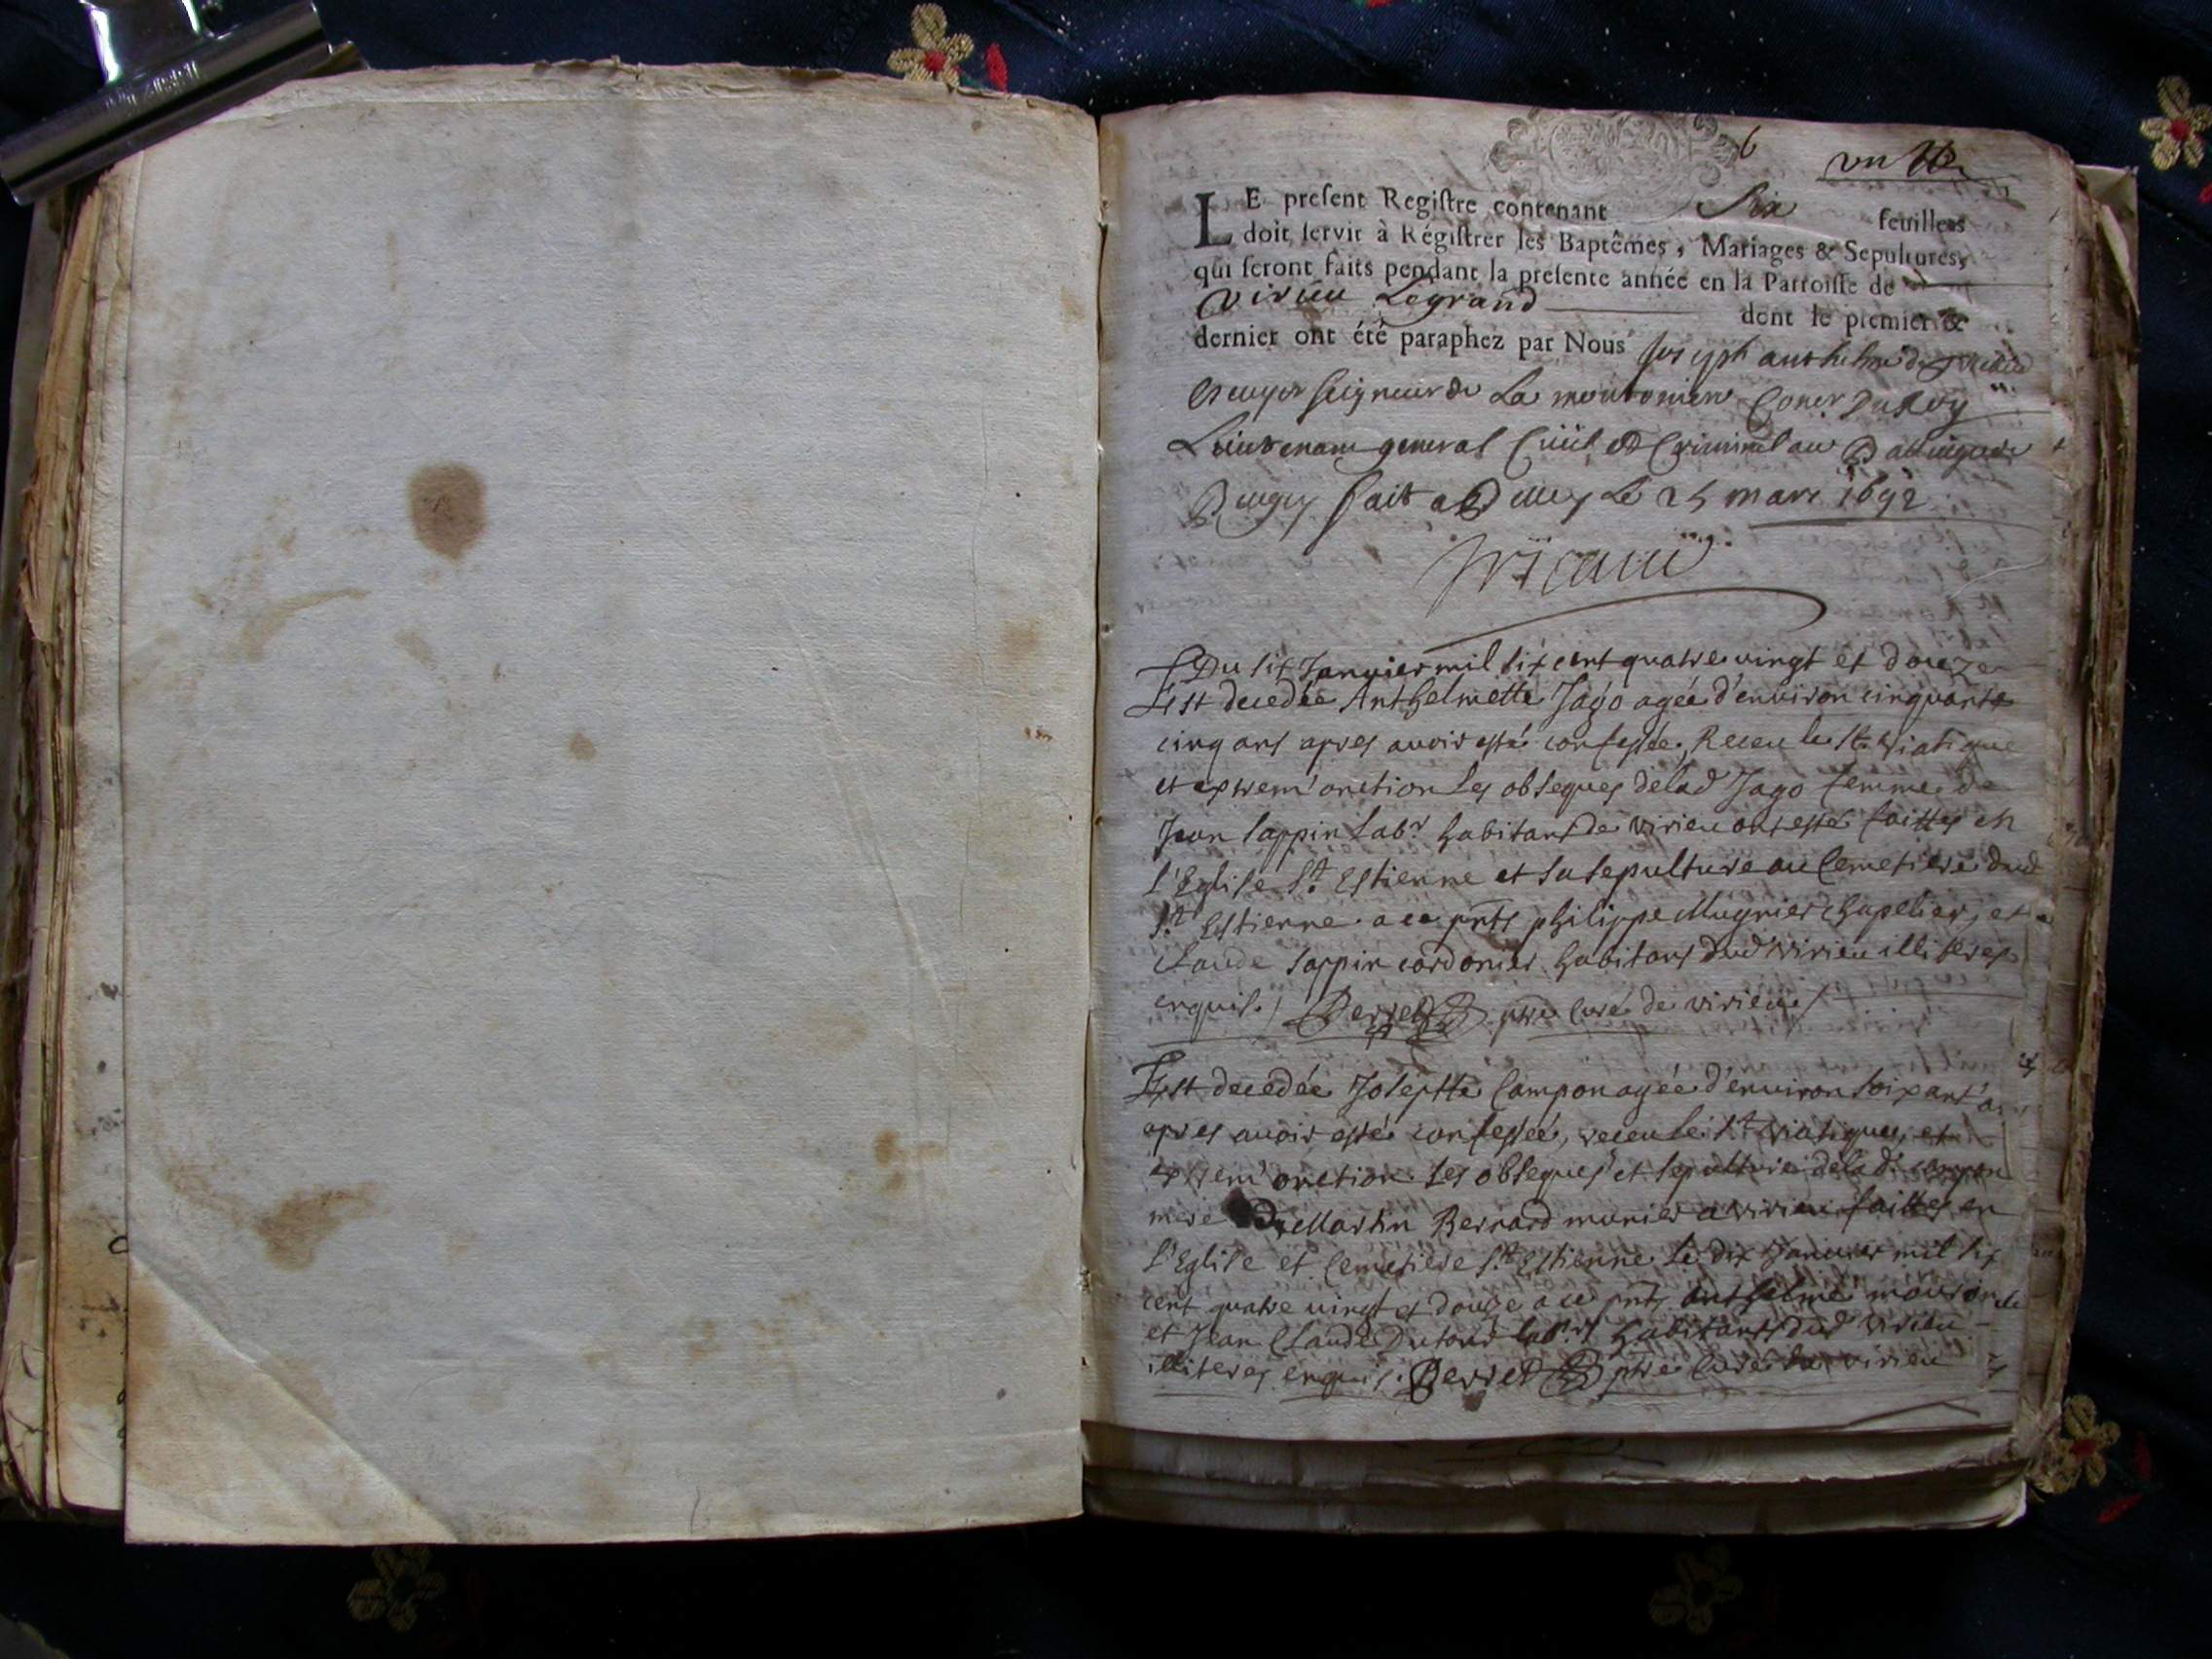 6
un
LE preſent Regiſtre contenant Six feuillets
doit ſervir à Régiſtrer les Baptêmes, Mariages & Sepultures,
qui ſeront faits pendant la preſente année en la Parroiſſe de
Virieu Legrand dont le premier &
dernier ont été paraphez par Nous Joseph anthelme de
Escuyer seigneur de La Coner du Roy
Lieutenant general Ciuil et Criminel au Bailliage de
Bugey fait a Belley Le 25 mars 1692
Du six Januier mil six cent quatre vingt et douze
Est decedée Anthelmette Jago agée d'enuiron cinquante
cinq ans apres auoir esté confessée, Receu le St. Viatique
et extrem' onction Les obseques de lad Jago femme de
Jean Sappin Labr habitant de Virieu ont esté faittes en
l'Eglise St. Estienne et sa sepulture au Cemetiere dud
St. Estienne a ce pnts philippe Mugnier chapelier, et
Claude Sappin cordonier habitans dud Virieu illiteres
enquis./ Perret ptre Curé de virieu /
Est decedée Josephte Campon agée d'enuiron soixant'
apres auoir esté confessée, receu le St. Viatique, et
extrem' onction. Les obseques et sepulture de lad. campon
mere de Martin Bernard munier a virieu faittes en
l'Eglise et Cemetiere St. Estienne Le dix Januier mil six
cent quatre vingt et douze a ce pnts Anthelme
et Jean Claude Dutour labrs habitants dud Virieu
illiteres enquis. Perret ptre Curé de virieu